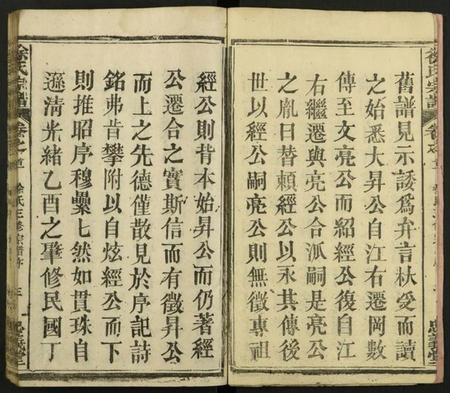 舊譜見示諉為弁言秋受而讀
之始悉大昇公自江右遷岡數
傳至文亮公而紹經公復自江
右繼遷與亮公合派嗣是亮公
之胤日替賴經公以永其傳後
世以經公嗣亮公則無徵專祖
經公則背本始昇公而仍著經
公遷合之實斯信而有徵昇公
而上之先德僅散見於序記詩
銘弗肯攀附以自炫經公而下
則推昭序穆纍七然如貫珠自
遜清光緒乙酉之肇修民國丁
徐氏宗譜
卷之首
徐氏三卷宗譜序
三
忠義堂